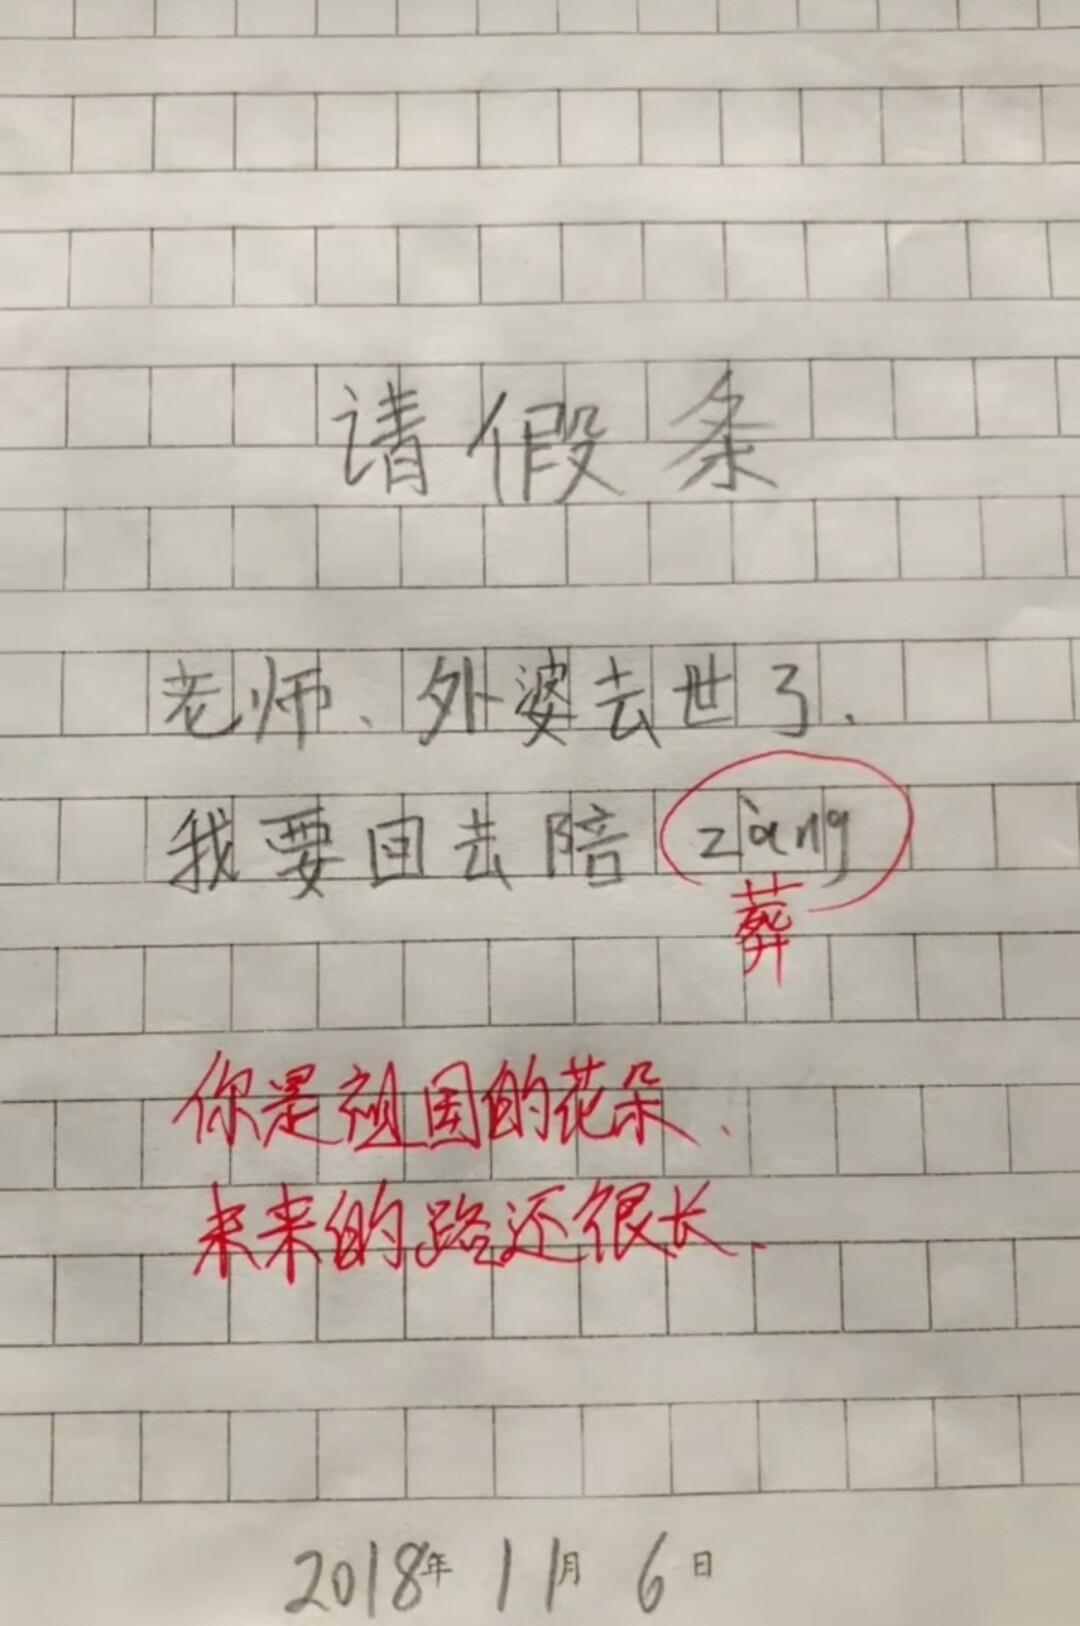 请假条
老师、外婆去世了.
我要回去陪 zàng
葬
你是祖国的花朵、
未来的路还很长.
2018年 11月 6日